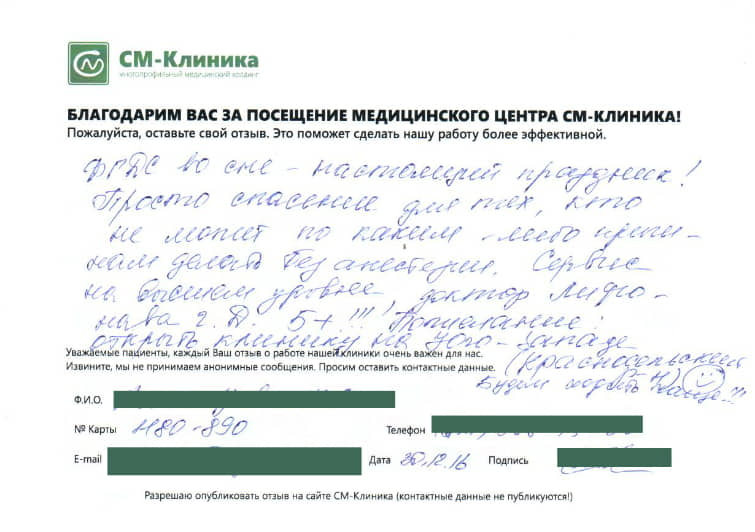 СМ-Клиника
многопрофильный медицинский холдинг
БЛАГОДАРИМ ВАС ЗА ПОСЕЩЕНИЕ МЕДИЦИНСКОГО ЦЕНТРА СМ-КЛИНИКА!
Пожалуйста, оставьте свой отзыв. Это поможет сделать нашу работу более эффективной.
ФГДС во сне - настоящий праздник!
Просто спасение для тех, кто
не может по каким-либо причи-
нам делать без анестезии. Сервис
на высшем уровне, доктор
Г. Д. 5+!!! Пожелание:
открыть клинику на Юго-Западе
Уважаемые пациенты, каждый Ваш отзыв о работе нашей клиники очень важен для нас.
(Красносельский
Извините, мы не принимаем анонимные сообщения. Просим оставить контактные данные.
Будем ходить чаще!!!
Ф.И.О.
№ Карты Н80-890 Телефон
E-mail Дата 30.12.16 Подпись
Разрешаю опубликовать отзыв на сайте СМ-Клиника (контактные данные не публикуются!)